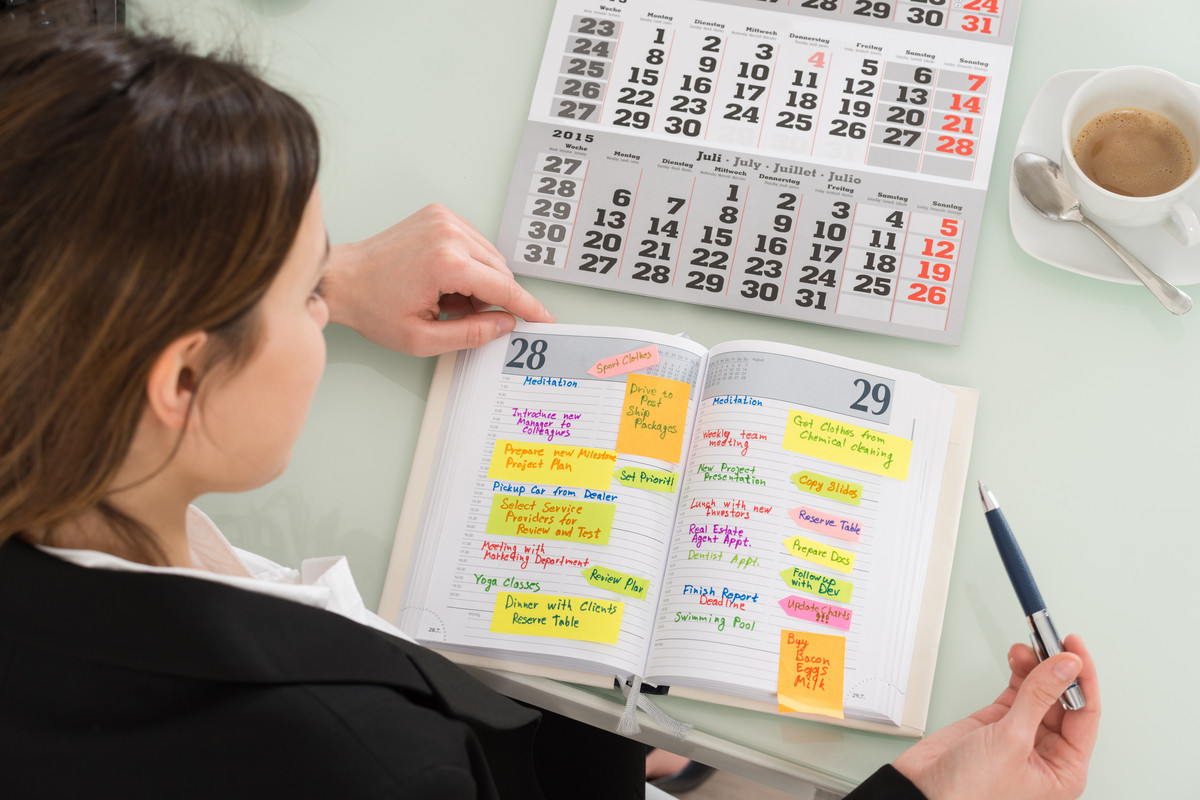 28 29 30 31
23 24 25 26 27
Woche Montag Dienstag Mittwoch Donnerstag Freitag Samstag Sonntag
23 1 2 3 4 5 6 7
24 8 9 10 11 12 13 14
25 15 16 17 18 19 20 21
26 22 23 24 25 26 27 28
27 29 30
2015 Juli · July · Juillet · Julio
Woche Montag Dienstag Mittwoch Donnerstag Freitag Samstag Sonntag
27 1 2 3 4 5
28 6 7 8 9 10 11 12
29 13 14 15 16 17 18 19
30 20 21 22 23 24 25 26
31 27 28 29 30 31
28
Sport Clothes
Meditation
Drive to
Post
Ship
Packages
Introduce new
Manager to
Colleagues
Prepare new Milestone
Project Plan
Set Prioriti
Pickup Car from Dealer
Select Service
Providers for
Review and Test
Meeting with
Marketing Department
Yoga Classes
Review Plan
Dinner with Clients
Reserve Table
28.7.
August
29
Meditation
Get Clothes from
Chemical cleaning
Weekly team
meeting
New Project
Presentation
Copy Slides
Lunch with new
Investors
Reserve Table
Real Estate
Agent Appt.
Prepare Docs
Dentist Appt.
Followup
with Dev
Finish Report
Deadline
Update Charts
!!!
Swimming Pool
Buy
Bacon
Eggs
Milk
29.7.